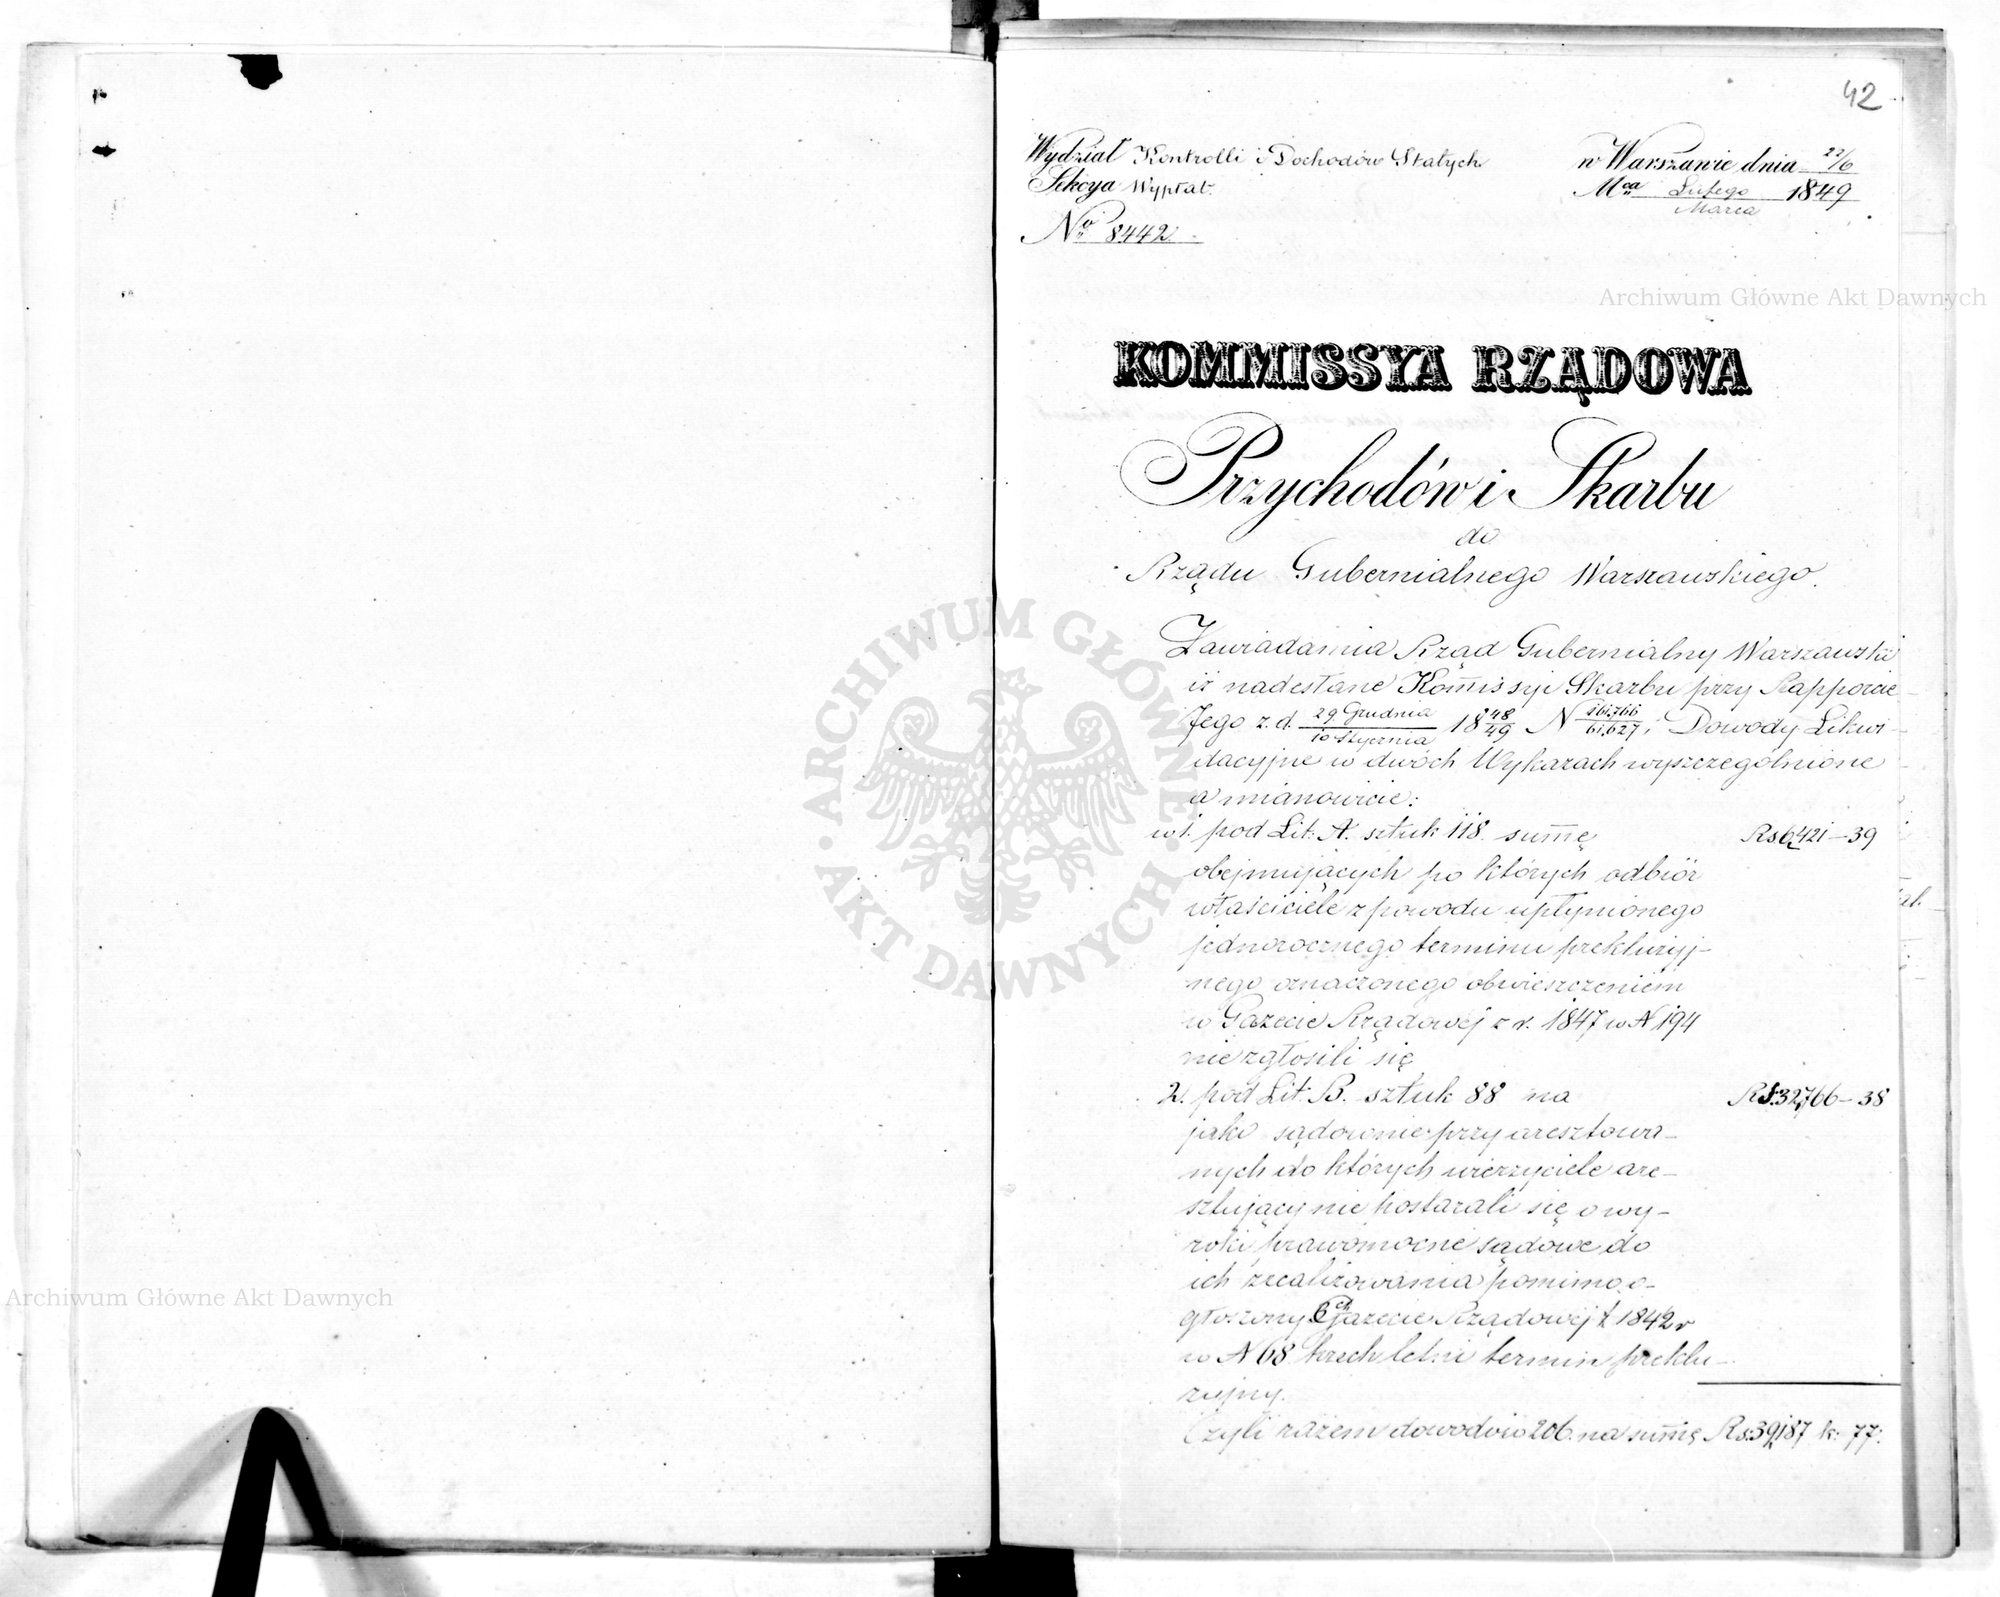 42
Wydział Kontrolli i Dochodów Stałych
Sekcya Wypłat.
No 8442
w Warszawie dnia 22/6
Mca Lutego 1849
Marca
Archiwum Główne Akt Dawnych
KOMMISSYA RZĄDOWA
Przychodów i Skarbu
do
Rządu Gubernialnego Warszawskiego.
Zawiadamia Rząd Gubernialny Warszawski
iż nadesłane Kommissyi Skarbu przy Rapporcie
Jego z. d. 29 Grudnia/10 Stycznia 1848/49 N 61,766/61,627, Dowody Likwi-
dacyjne w dwóch Wykazach wyszczególnione
a mianowicie:
w 1. pod Lit: A. sztuk 118. summę Rs 6,421-39
obejmujących po których odbiór
właściciele z powodu upłynionego
jednorocznego terminu prekluzyj-
nego oznaczonego obwieszczeniem
w Gazecie Rządowej z r. 1847 w N 194
nie zgłosili się
2. pod Lit: B. sztuk 88 na Rs: 32,766-38
jako sądownie przyaresztowa-
nych do których wierzyciele are-
sztujący nie postarali się o wy-
roki prawomocne sądowe do
ich zrealizowania pomimo o-
głoszony Gazecie Rządowej z 1842 r
w N 68. trzech letni termin preklu-
zyjny.
Czyli razem dowodów 206. na summę Rs: 39,187 k: 77.
ARCHIWUM GŁÓWNE AKT DAWNYCH
Archiwum Główne Akt Dawnych